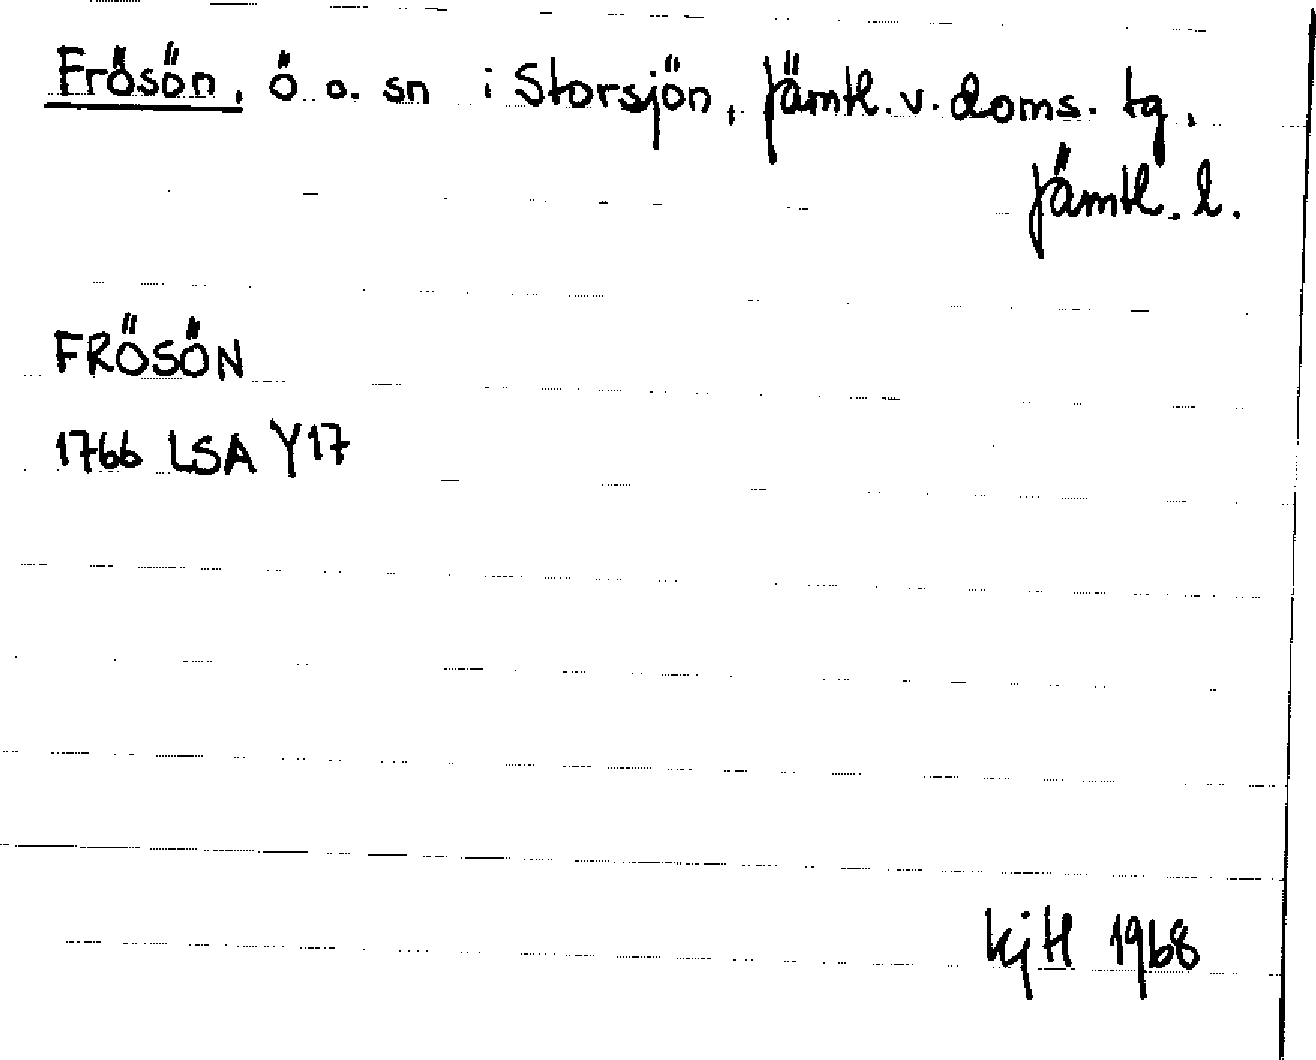 Frösön, ö o. sn i Storsjön, Jämtl. v. doms. tg.
Jämtl. l.
FRÖSÖN
1766 LSA Y17
KjH 1968